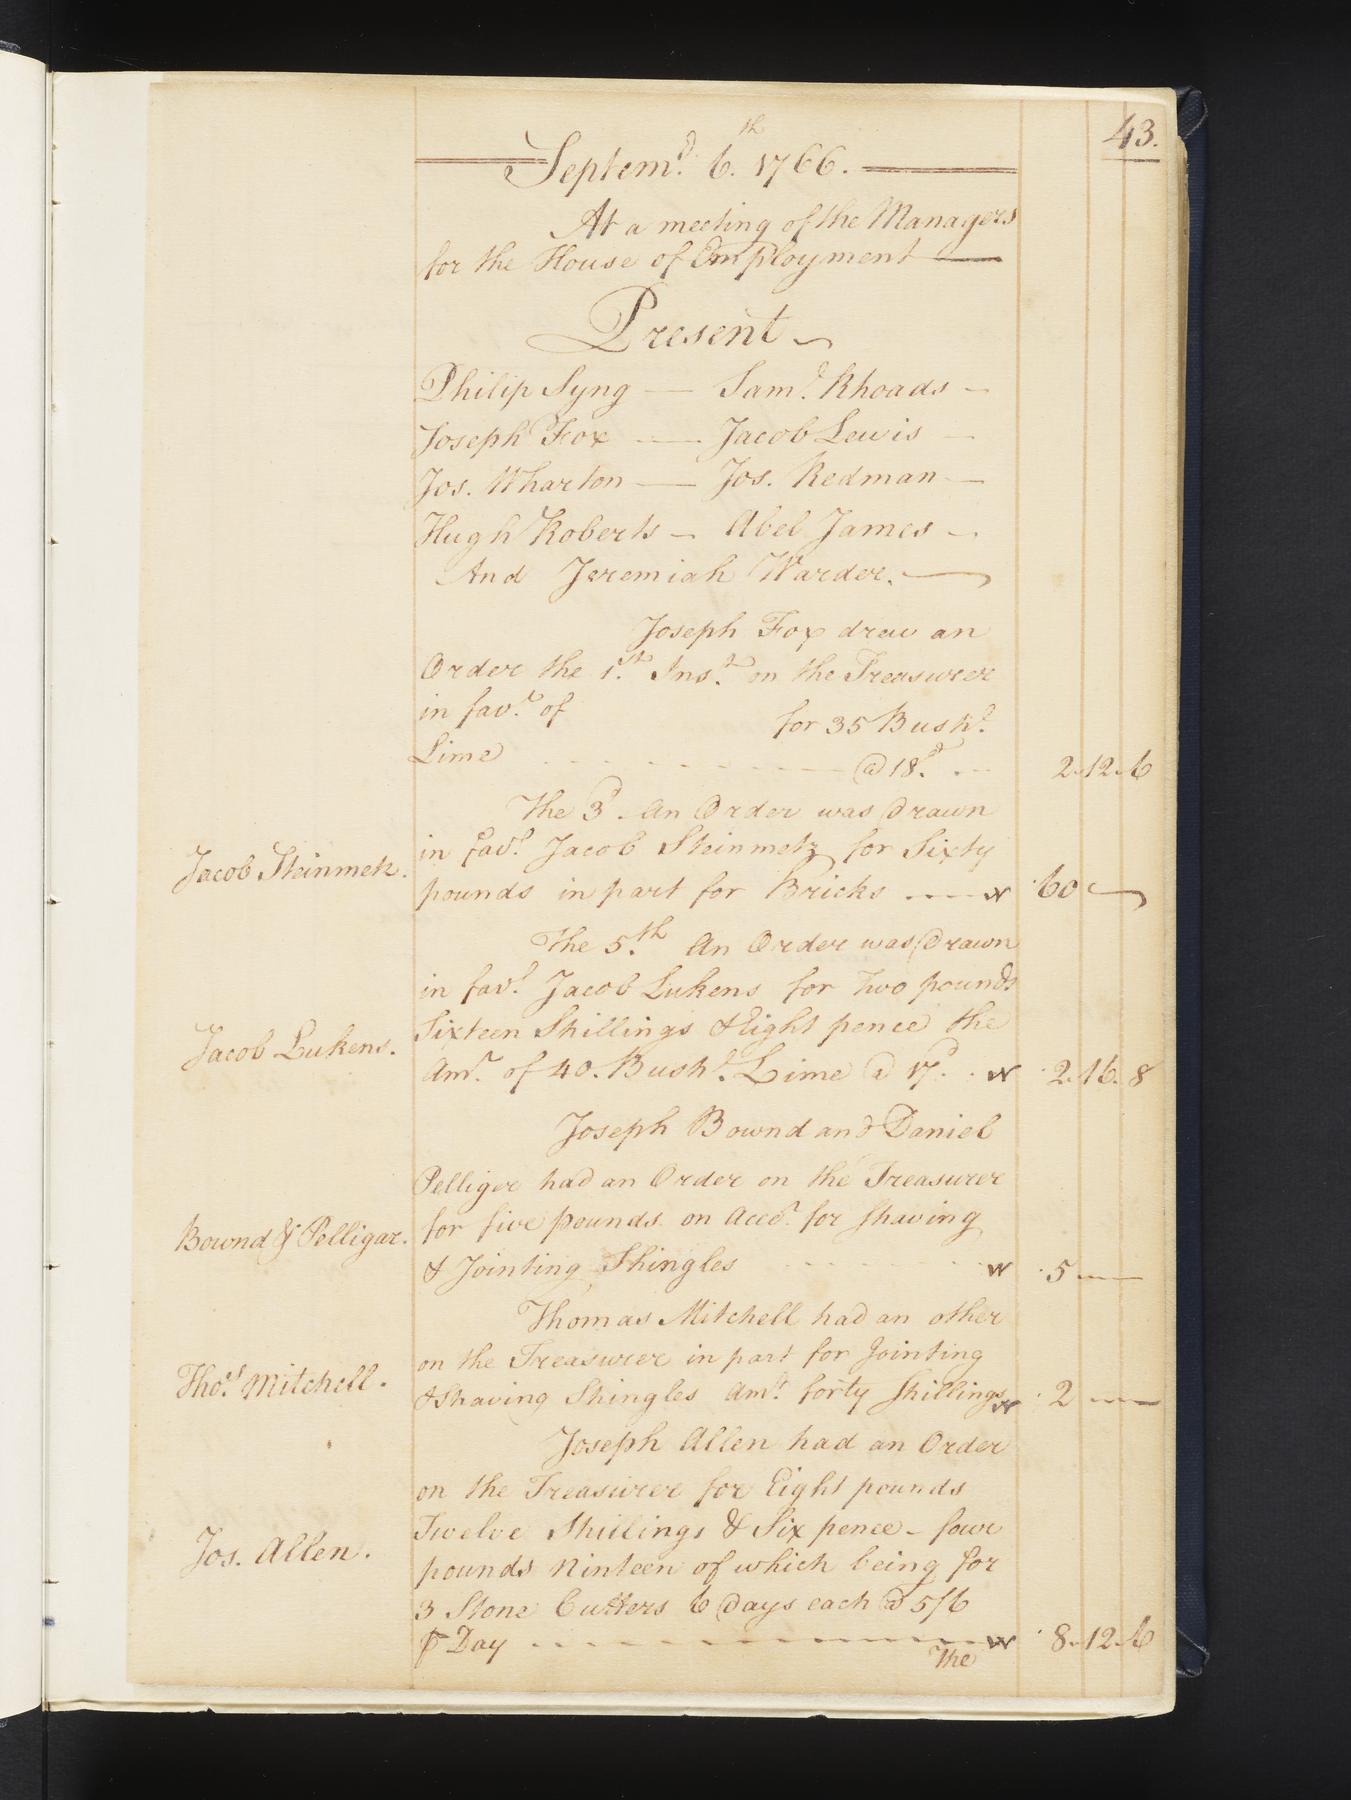 43.
Septemr. 6.th 1766.
At a meeting of the Managers
for the House of Employment
Present
Philip Syng — Saml. Rhoads —
Joseph Fox — Jacob Lewis —
Jos. Wharton — Jos. Redman —
Hugh Roberts — Abel James —
And Jeremiah Warder. —
Joseph Fox drew an
Order the 1st. Inst. on the Treasurer
in favr. of for 35 Bushl.
Lime @ 18d. 2.12.6
The 3d. An Order was Drawn
in favr. Jacob Steinmetz for Sixty
Jacob Steinmetz.
pounds in part for Bricks 60
The 5.th An Order was Drawn
in favr. Jacob Lukens for Two pounds
Sixteen Shillings & Eight pence the
Jacob Lukens.
Amt. of 40. Bushl. Lime @ 17d. 2.16.8
Joseph Bownd and Daniel
Pelliger had an Order on the Treasurer
for five pounds on Acct. for Shaving
Bownd & Pelligar.
& Jointing Shingles 5
Thomas Mitchell had an other
on the Treasurer in part for Jointing
Thos. Mitchell.
& Shaving Shingles Amt. forty Shillings 2
Joseph Allen had an Order
on the Treasurer for Eight pounds
Twelve Shillings & Six pence — four
Jos. Allen.
pounds Ninteen of which being for
3 Stone Cutters 6 Days each @ 5/6
⅌ Day 8.12.6
The